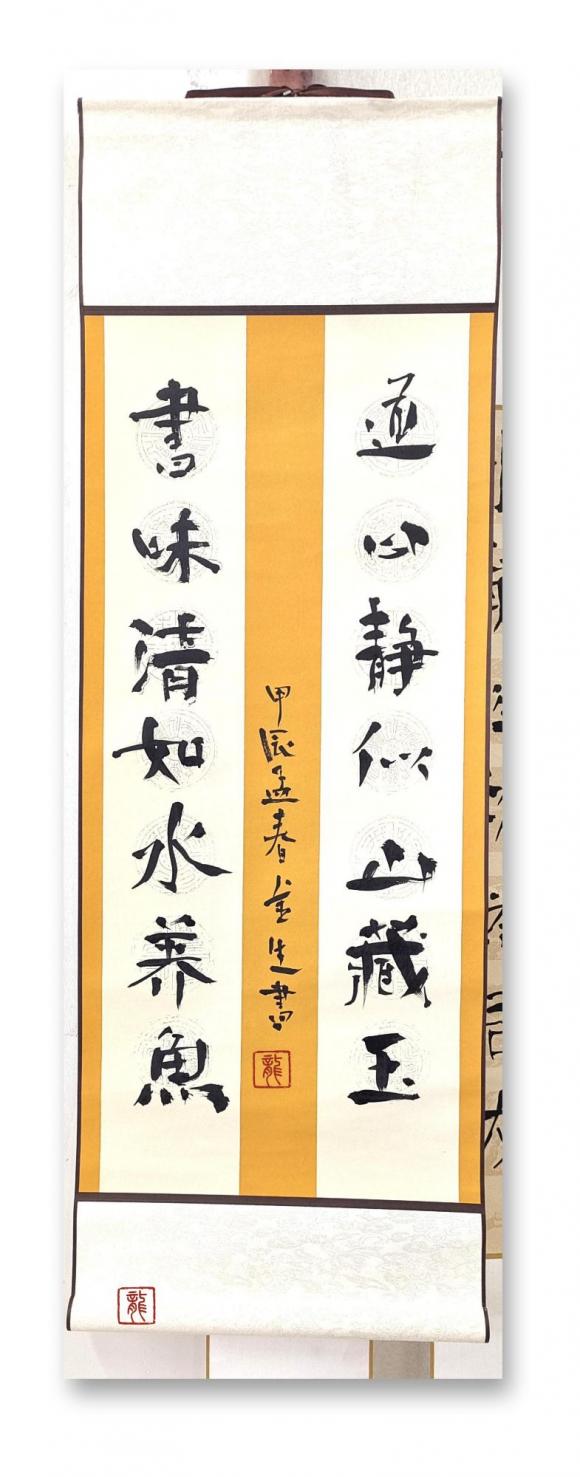 道心静似山藏玉
書味清如水养魚
甲辰孟春金生書
龍
龍